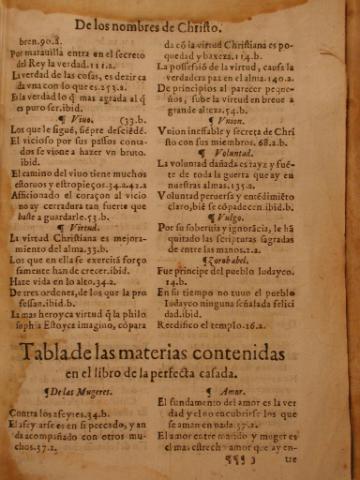 De los nombres de Christo.
bren.90.8.
Por marauilla entra en el secreto
del Rey la verdad.111.2.
La verdad de las cosas, es dezir ca
da vna con lo que es.253.2.
Es la verdad lo q̃ mas agrada al q̃
es puro ser.ibid.
¶ Viuo. (33.b.
Los que le sigué, siépre desciédé.
El vicioso por sus passos conta-
dos se viene a hazer vn bruto.
ibid.
El camino del viuo tiene muchos
estoruos y estropieços.34.2.42.2
Afficionado el coraçon al vicio
no ay cerradura tan fuerte que
baste a guardarle.53.b.
¶ Virtud.
La virtud Christiana es mejora-
miento del alma.33.b.
Los que en ella se exercitã forço
samente han de crecer.ibid.
Haze vida en lo alto.34.2.
De tres ordenes, de los que la pro
fessan.ibid.b.
La mas heroyca virtud q̃ la philo
sophia Estoyca imagino, cópara
da có la virtud Christiana es po-
quedad y baxeza.114.b.
La possessió de la virtud, causa la
verdadera paz en el alma.140.2.
De principios al parecer peque-
ños, sube la virtud en breue a
grande alteza.54.b.
¶ Vnion.
Vnion ineffable y secreta de Chri
sto con sus miembros.68.2.b.
¶ Voluntad.
La voluntad dañada es rayz y fué-
te de toda la guerra que ay en
nuestras almas.135.2.
Voluntad peruersa y entédimiéto
claro, bié se cópadecen.ibid.b.
¶ Vulgo.
Por su soberuia y ignorãcia, le hã
quitado las scripturas sagradas
de entre las manos.2.2.
¶ Zorobabel.
Fue principe del pueblo Iudayco.
14.b.
En su tiempo no tuuo el pueblo
Iudayco ninguna señalada felici
dad.ibid.
Reedifico el templo.16.2.
Tabla de las materias contenidas
en el libro de la perfecta casada.
¶ De las Mugeres.
Contra los afeytes.34.b.
El afeytarse es en si peccado, y an
da acompañado con otros mu-
chos.37.2.
¶ Amor.
El fundamento del amor es la ver
dad y el no encubrirse los que
se aman en nada.37.2.
El amor entre marido y muger es
el mas estrecho amor que ay en-
¶¶¶ 3 tre